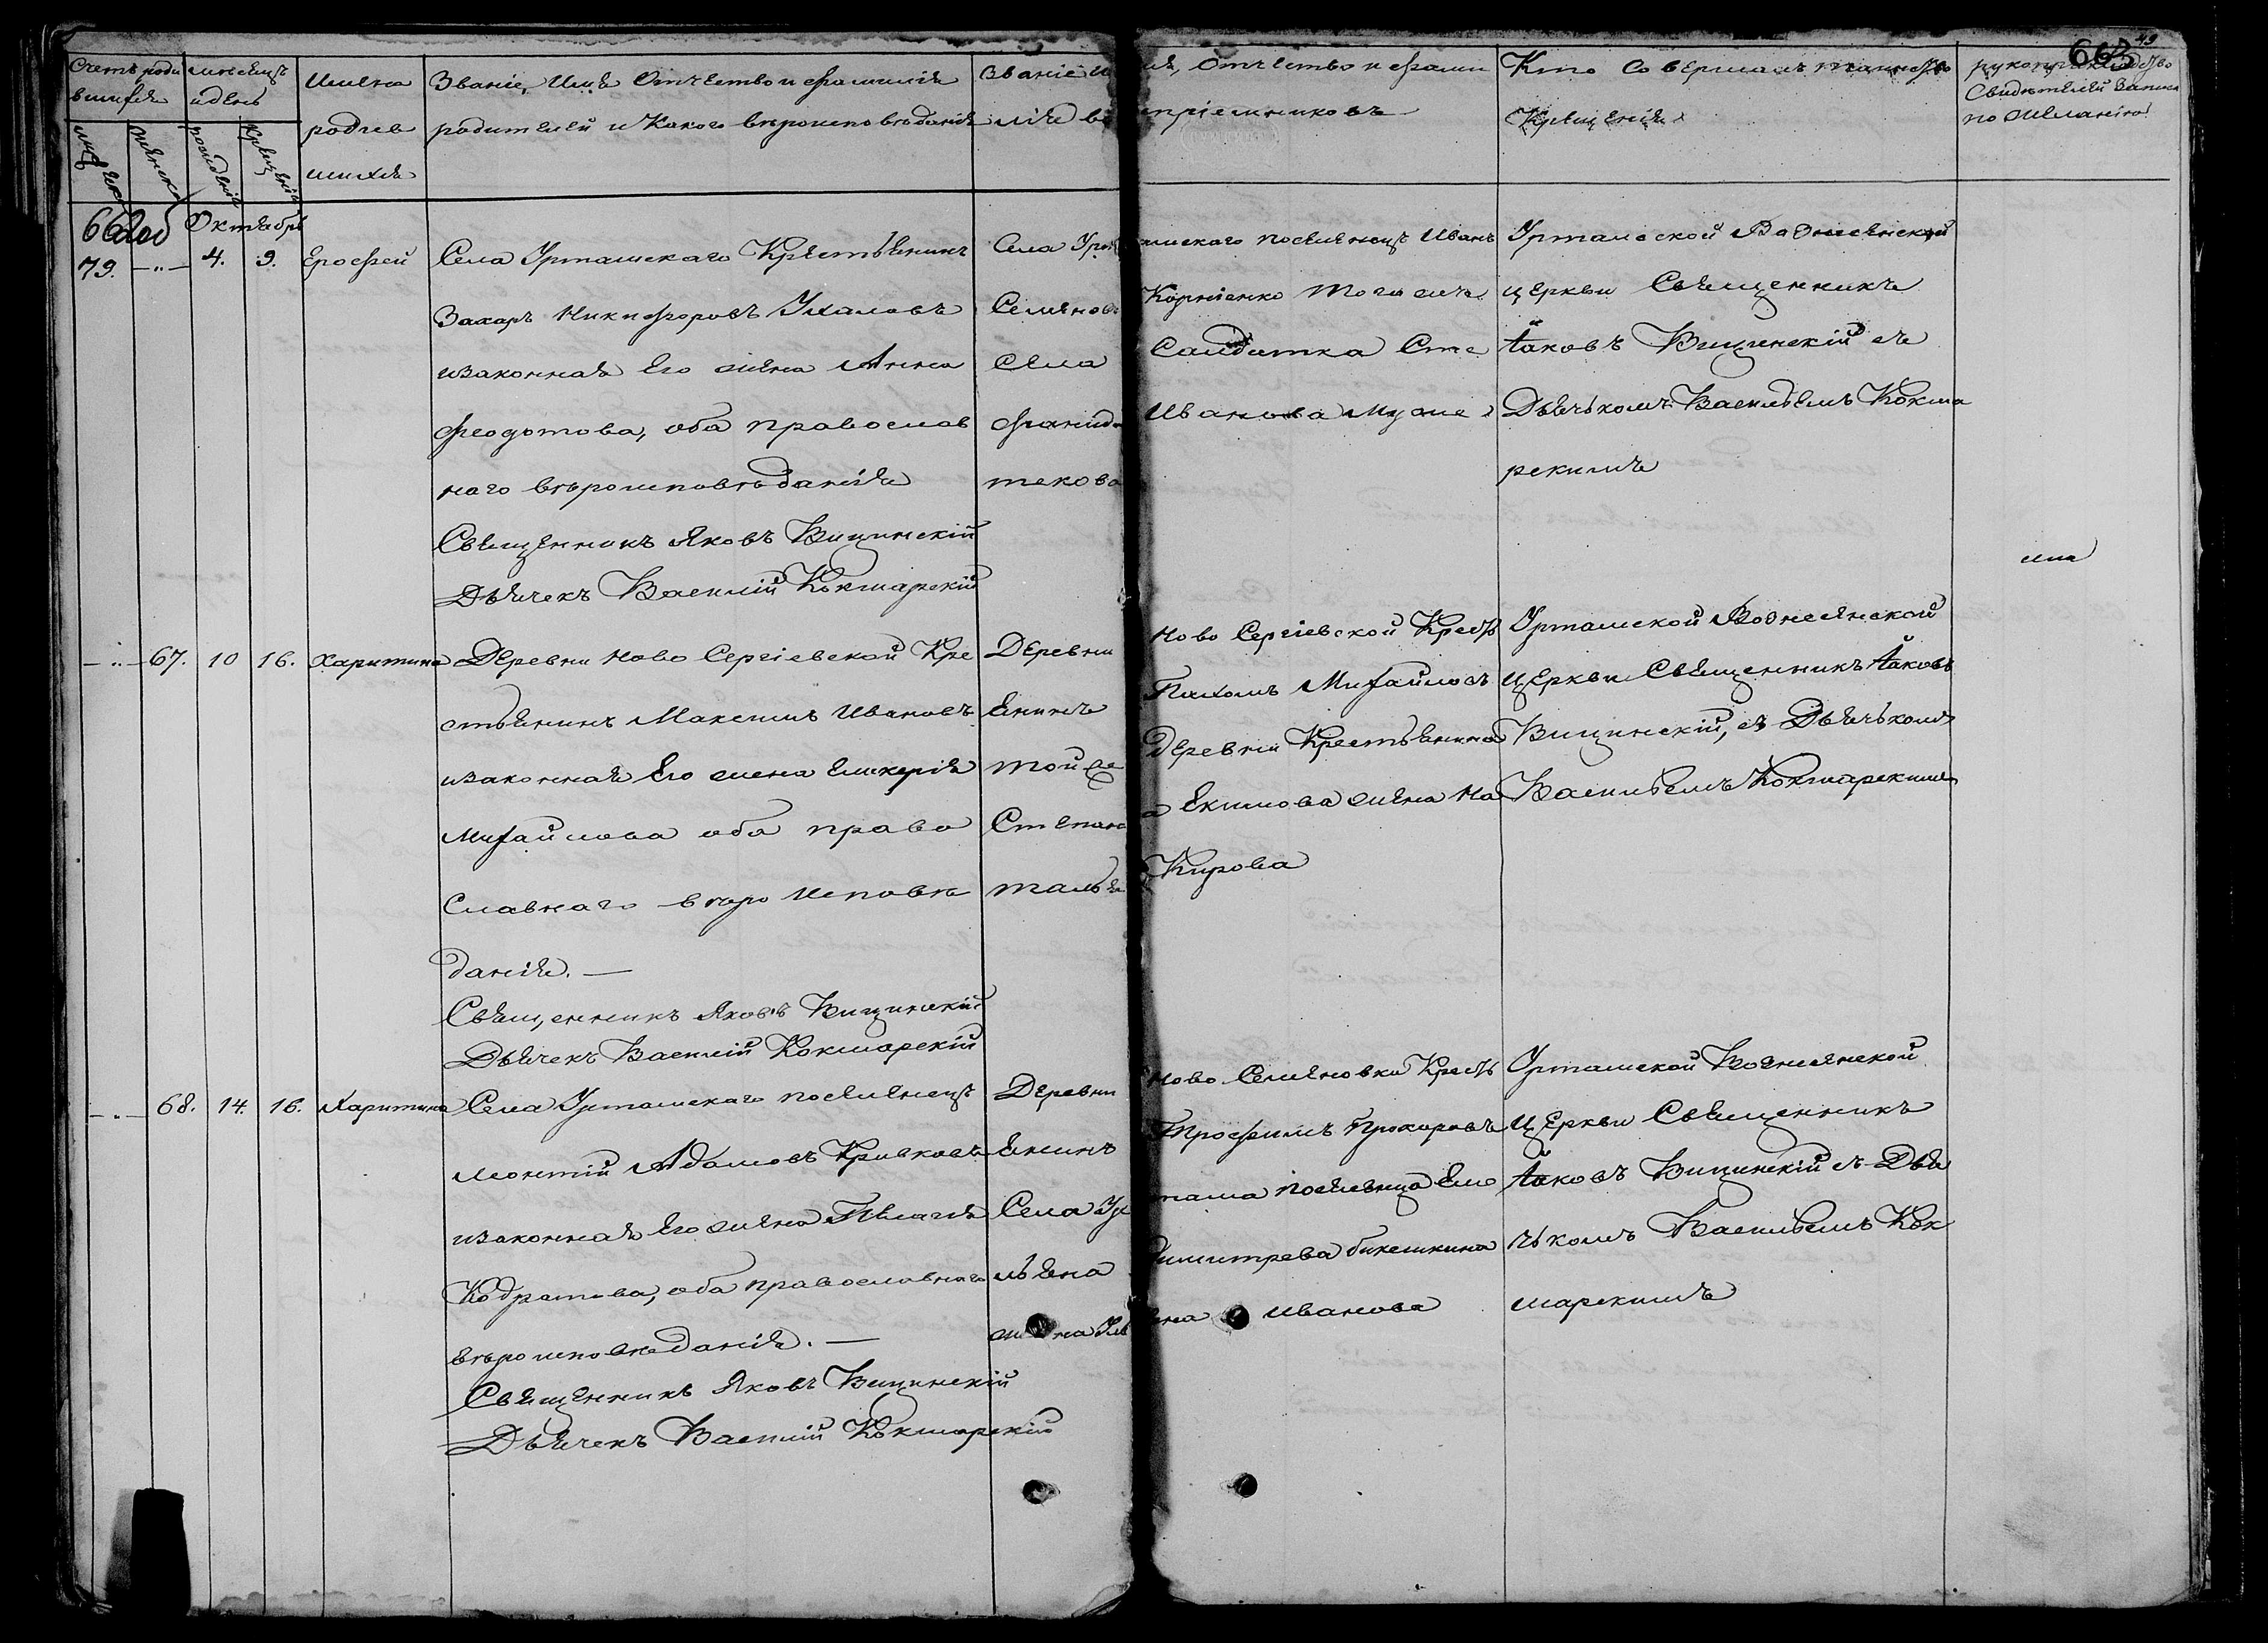 49
663
Счетъ роди
вшихся
мѣсяцъ
и день
Имена
родив
шихся
Званіе, Имя Отчество и фамилія
родителей и Какого вѣроисповѣданія
Званіе И
мя, Отчество и фами
лія во
спріемниковъ
Кто Совершалъ таинство
Крещенія
рукоприкладство
Свидѣтелей записи
по желанію
мужеска
женска
рожденія
Крещенія
662об
Октябрь
79. —"— 4. 9. Ерофей
Села Урташскаго Крестьянинъ
Захаръ Никифоровъ Ухаловъ
изаконная Его жена Анна
Феодотова, оба православ
наго вѣроисповѣданія
Священникъ Яковъ Вицинскій
Дьячекъ Василій Кокшарскій
Села Урта
шскаго поселенецъ Иванъ
Семеновъ
Корніенко того жъ
Села
Салдатка Сте
фанида
Иванова Муже
текова
Урташской Вознесенской
церкви Священникъ
Іаковъ Вицинскій съ
Дьячькомъ Васильемъ Кокша
рскимъ
—"— 67. 10 16. Харитина
Деревни Ново Сергіевской Кре
стьянинъ Максимъ Ивановъ
изаконная Его жена Гликерія
Михайлова оба право
славнаго вѣро Исповѣ
данія. —
Священникъ Яковъ Вицинскій
Дьячекъ Василій Кокшарскій
Деревни
Ново Сергіевской Кресть
Енинъ
Пахомъ Михайловъ
той же
Деревни Крестьянина
Степана
Екимова жена На
талья
Кирова
Урташской Вознесенской
церкви Священникъ Іаковъ
Вицинскій, съ Дьячькомъ
Васильемъ Кокшарскимъ
—"— 68. 14. 16. Харитина
Села Урташскаго поселенецъ
Леонтій Адамовъ Кривковъ
изаконная Его жена Пелагія
Кодратова, оба православнаго
вѣроисповеданія. —
Священникъ Яковъ Вицинскій
Дьячекъ Василій Кокшарскій
Деревни
Ново Семеновки Кресть
Енинъ
Трофимъ Прохоровъ
Села Ур
таша поселенца Еме
льяна
Димитрева бикешкина
жена
Иванова
Урташской Вознесенской
Церкви Священникъ
Іаковъ Вицинскій съ Дья
чькомъ Васильемъ Кок
шарскимъ